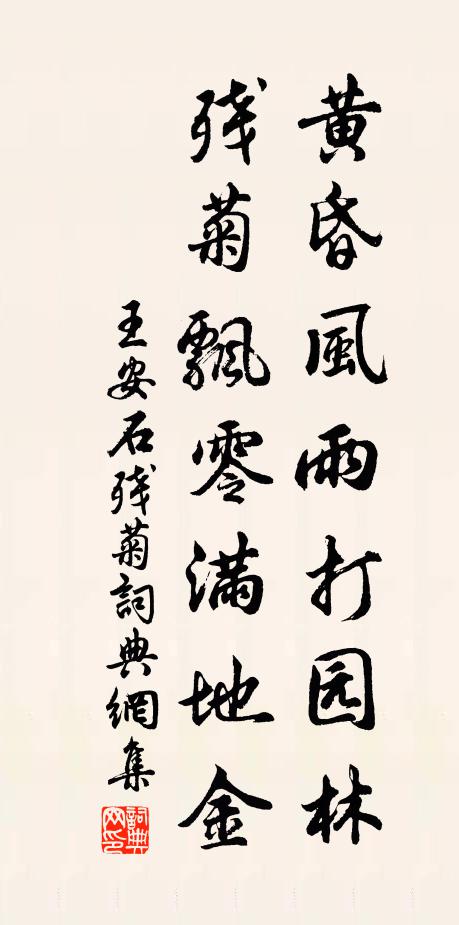 黄昏風雨打园林
残菊飄零满地金
王安石残菊詞典網集
詞典网印